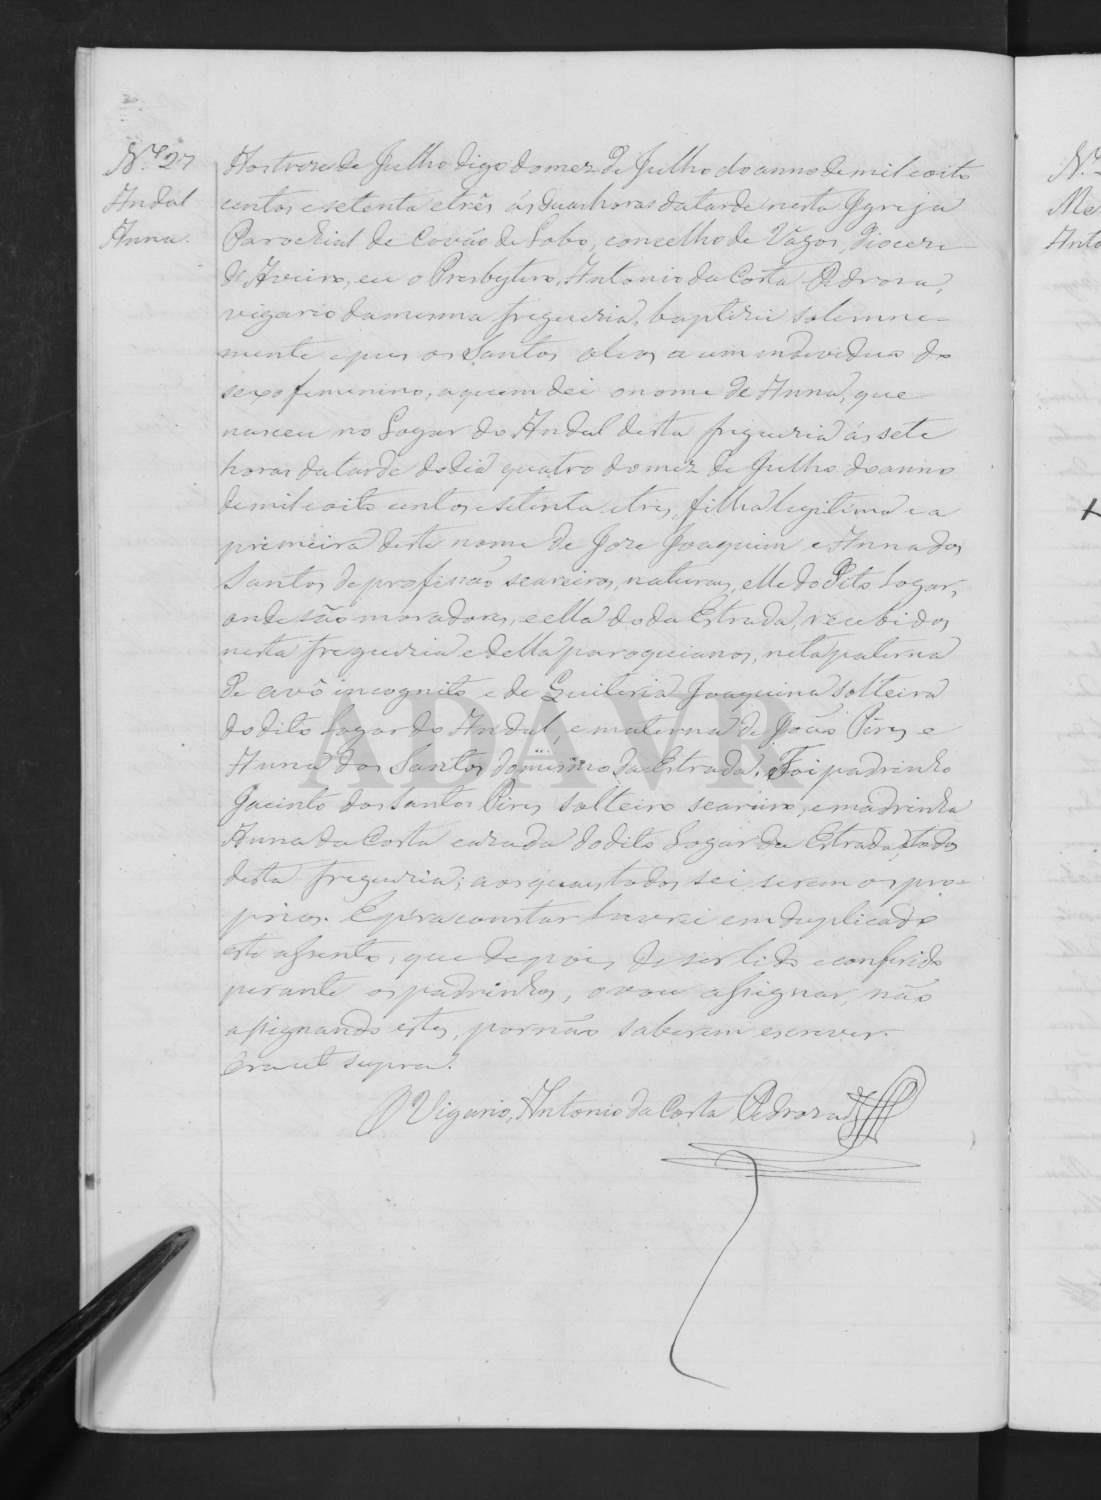 N.º 27
Andal
Anna.
Aos treze de Julho digo do mez de Julho do anno de mil e oito
centos e setenta e três ás duas horas da tarde nesta Igreja
Parochial de Covão do Lobo, concelho de Vagos, Diocese
d'Aveiro, eu o Presbytero, Antonio da Costa Pedrosa,
vigario da mesma freguezia, baptizei solemne-
mente e pus os Santos oleos a um individuo do
sexo feminino, a quem dei o nome de Anna, que
nasceu no Logar do Andal desta freguezia ás sete
horas da tarde do dia quatro do mez de Julho do anno
de mil e oito centos e setenta e tres, filha legitima e a
primeira deste nome de Joze Joaquim e Anna dos
Santos de profissão seareiros, naturaes, elle do dito Logar,
onde são moradores, e ella do da Estrada, recebidos
nesta freguezia e della paroquianos, neta paterna
de avô incognito e de Quiteria Joaquina solteira
do dito Logar do Andal, e materna de João Pires e
Anna dos Santos do mesmo da Estrada. Foi padrinho
Jacinto dos Santos Pires solteiro seareiro, e madrinha
Anna da Costa cazada do dito Logar da Estrada, todos
desta freguezia; aos quaes todos sei serem os pro-
prios. E para constar lavrei em duplicado
este assento, que depois de ser lido e conferido
perante os padrinhos, o vou assignar, não
assignando estes, por não saberem escrever.
Era ut supra.
O Vigario, Antonio da Costa Pedrosa
ADAVR
N.º
Me
Anto